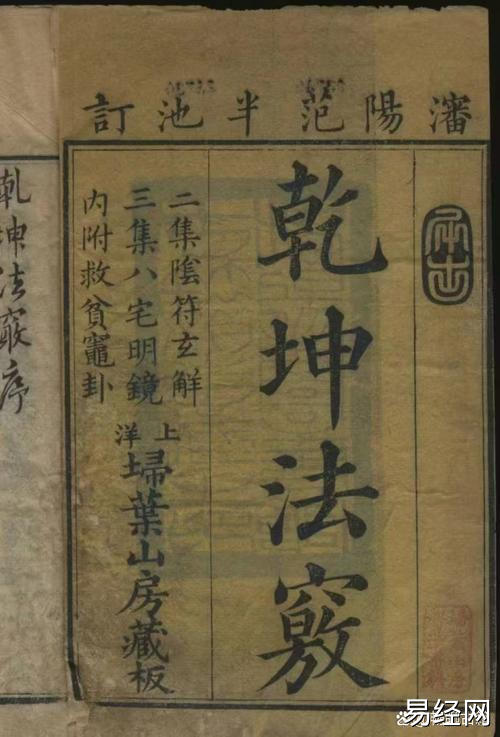 瀋陽范半池訂
乾坤法竅
二集陰符玄解
三集八宅明鏡
內附救貧竈卦
上洋
埽葉山房藏板
乾坤法竅序
易经网